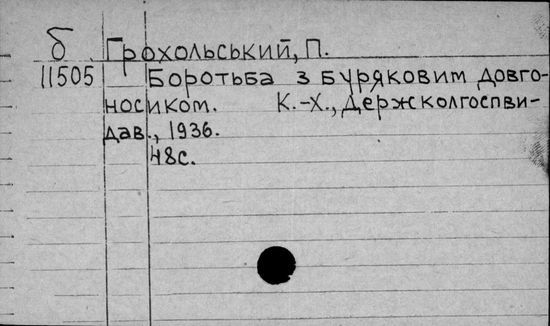 б Грохольський, П.
11505 Боротьба з буряковим довго-
носиком. К.-Х., Держколгоспви-
дав., 1936.
48с.